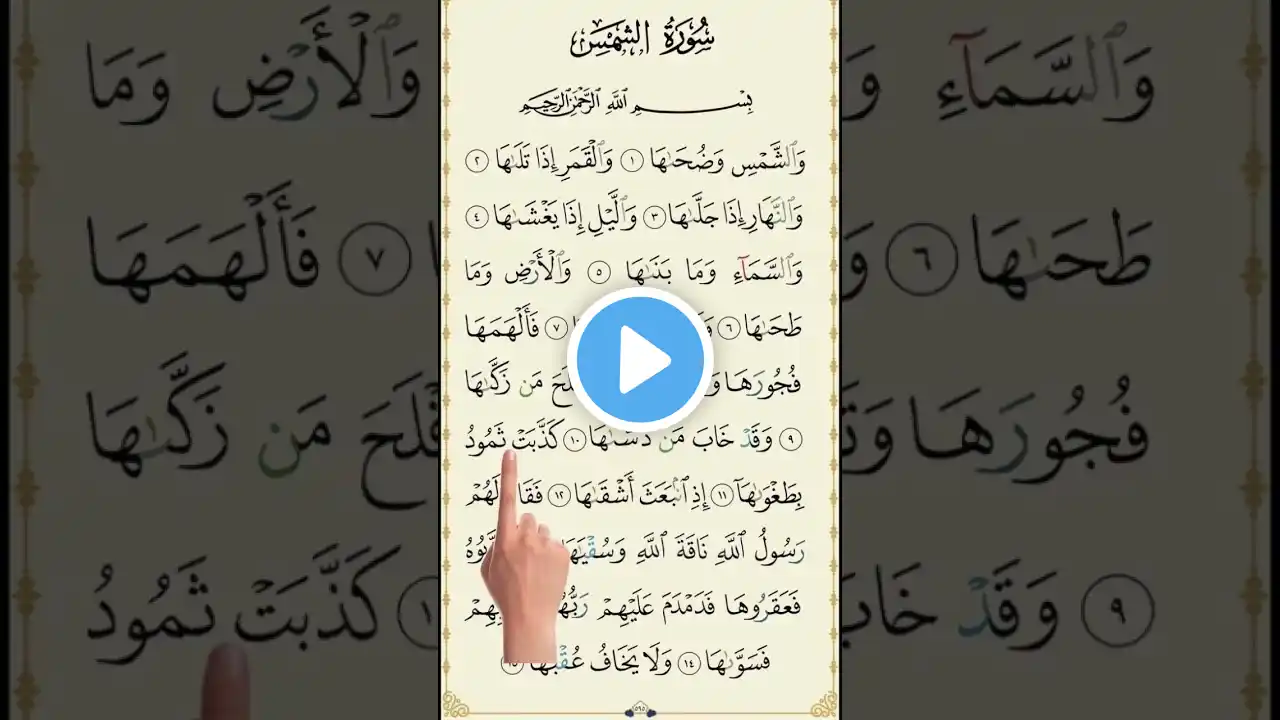 سُورَةُ الشَّمْسِ
بِسْمِ اللَّهِ الرَّحْمَٰنِ الرَّحِيمِ
وَٱلشَّمْسِ وَضُحَىٰهَا ١ وَٱلْقَمَرِ إِذَا تَلَىٰهَا ٢
وَٱلنَّهَارِ إِذَا جَلَّىٰهَا ٣ وَٱلَّيْلِ إِذَا يَغْشَىٰهَا ٤
وَٱلسَّمَآءِ وَمَا بَنَىٰهَا ٥ وَٱلْأَرْضِ وَمَا
طَحَىٰهَا ٦ ٧ فَأَلْهَمَهَا
فُجُورَهَا مَن زَكَّىٰهَا
٩ وَقَدْ خَابَ مَن دَسَّىٰهَا ١٠ كَذَّبَتْ ثَمُودُ
بِطَغْوَىٰهَآ ١١ إِذِ ٱنۢبَعَثَ أَشْقَىٰهَا ١٢ فَقَالَ لَهُمْ
رَسُولُ ٱللَّهِ نَاقَةَ ٱللَّهِ وَسُقْيَٰهَا
فَعَقَرُوهَا فَدَمْدَمَ عَلَيْهِمْ
فَسَوَّىٰهَا ١٤ وَلَا يَخَافُ عُقْبَٰهَا ١٥
٥٩٥